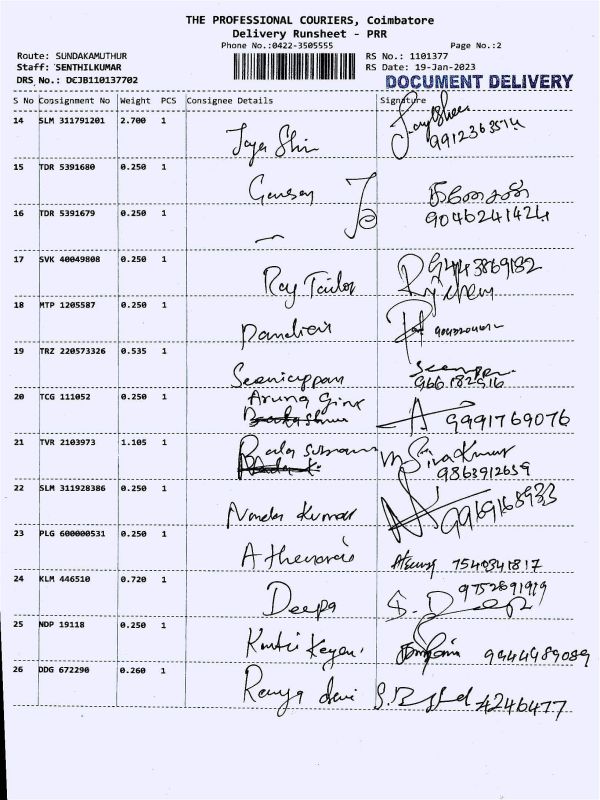 THE PROFESSIONAL COURIERS, Coimbatore
Delivery Runsheet - PRR
Phone No.:0422-3505555 Page No.:2
Route: SUNDAKAMUTHUR RS No.: 1101377
Staff: SENTHILKUMAR RS Date: 19-Jan-2023
DRS No.: DCJB110137702 DOCUMENT DELIVERY
S No Consignment No Weight PCS Consignee Details Signature
14 SLM 311791201 2.700 1
Jaya Shri
15 TDR 5391680 0.250 1
Ganesan கணேசன்
16 TDR 5391679 0.250 1 9046241424
17 SVK 40049808 0.250 1
Ray Tailor 9443869182
18 MTP 1205587 0.250 1
19 TRZ 220573326 0.535 1
20 TCG 111052 0.250 1
Arung 9991769076
21 TVR 2103973 1.105 1
Sivakumar
9863912659
22 SLM 311928386 0.250 1
Nanda Kumar 9969168933
23 PLG 600000531 0.250 1
7540341817
24 KLM 446510 0.720 1 9752691919
Deepa S. Deepa
25 NDP 19118 0.250 1
9444489089
26 DDG 672290 0.260 1
Ramya devi 4246477